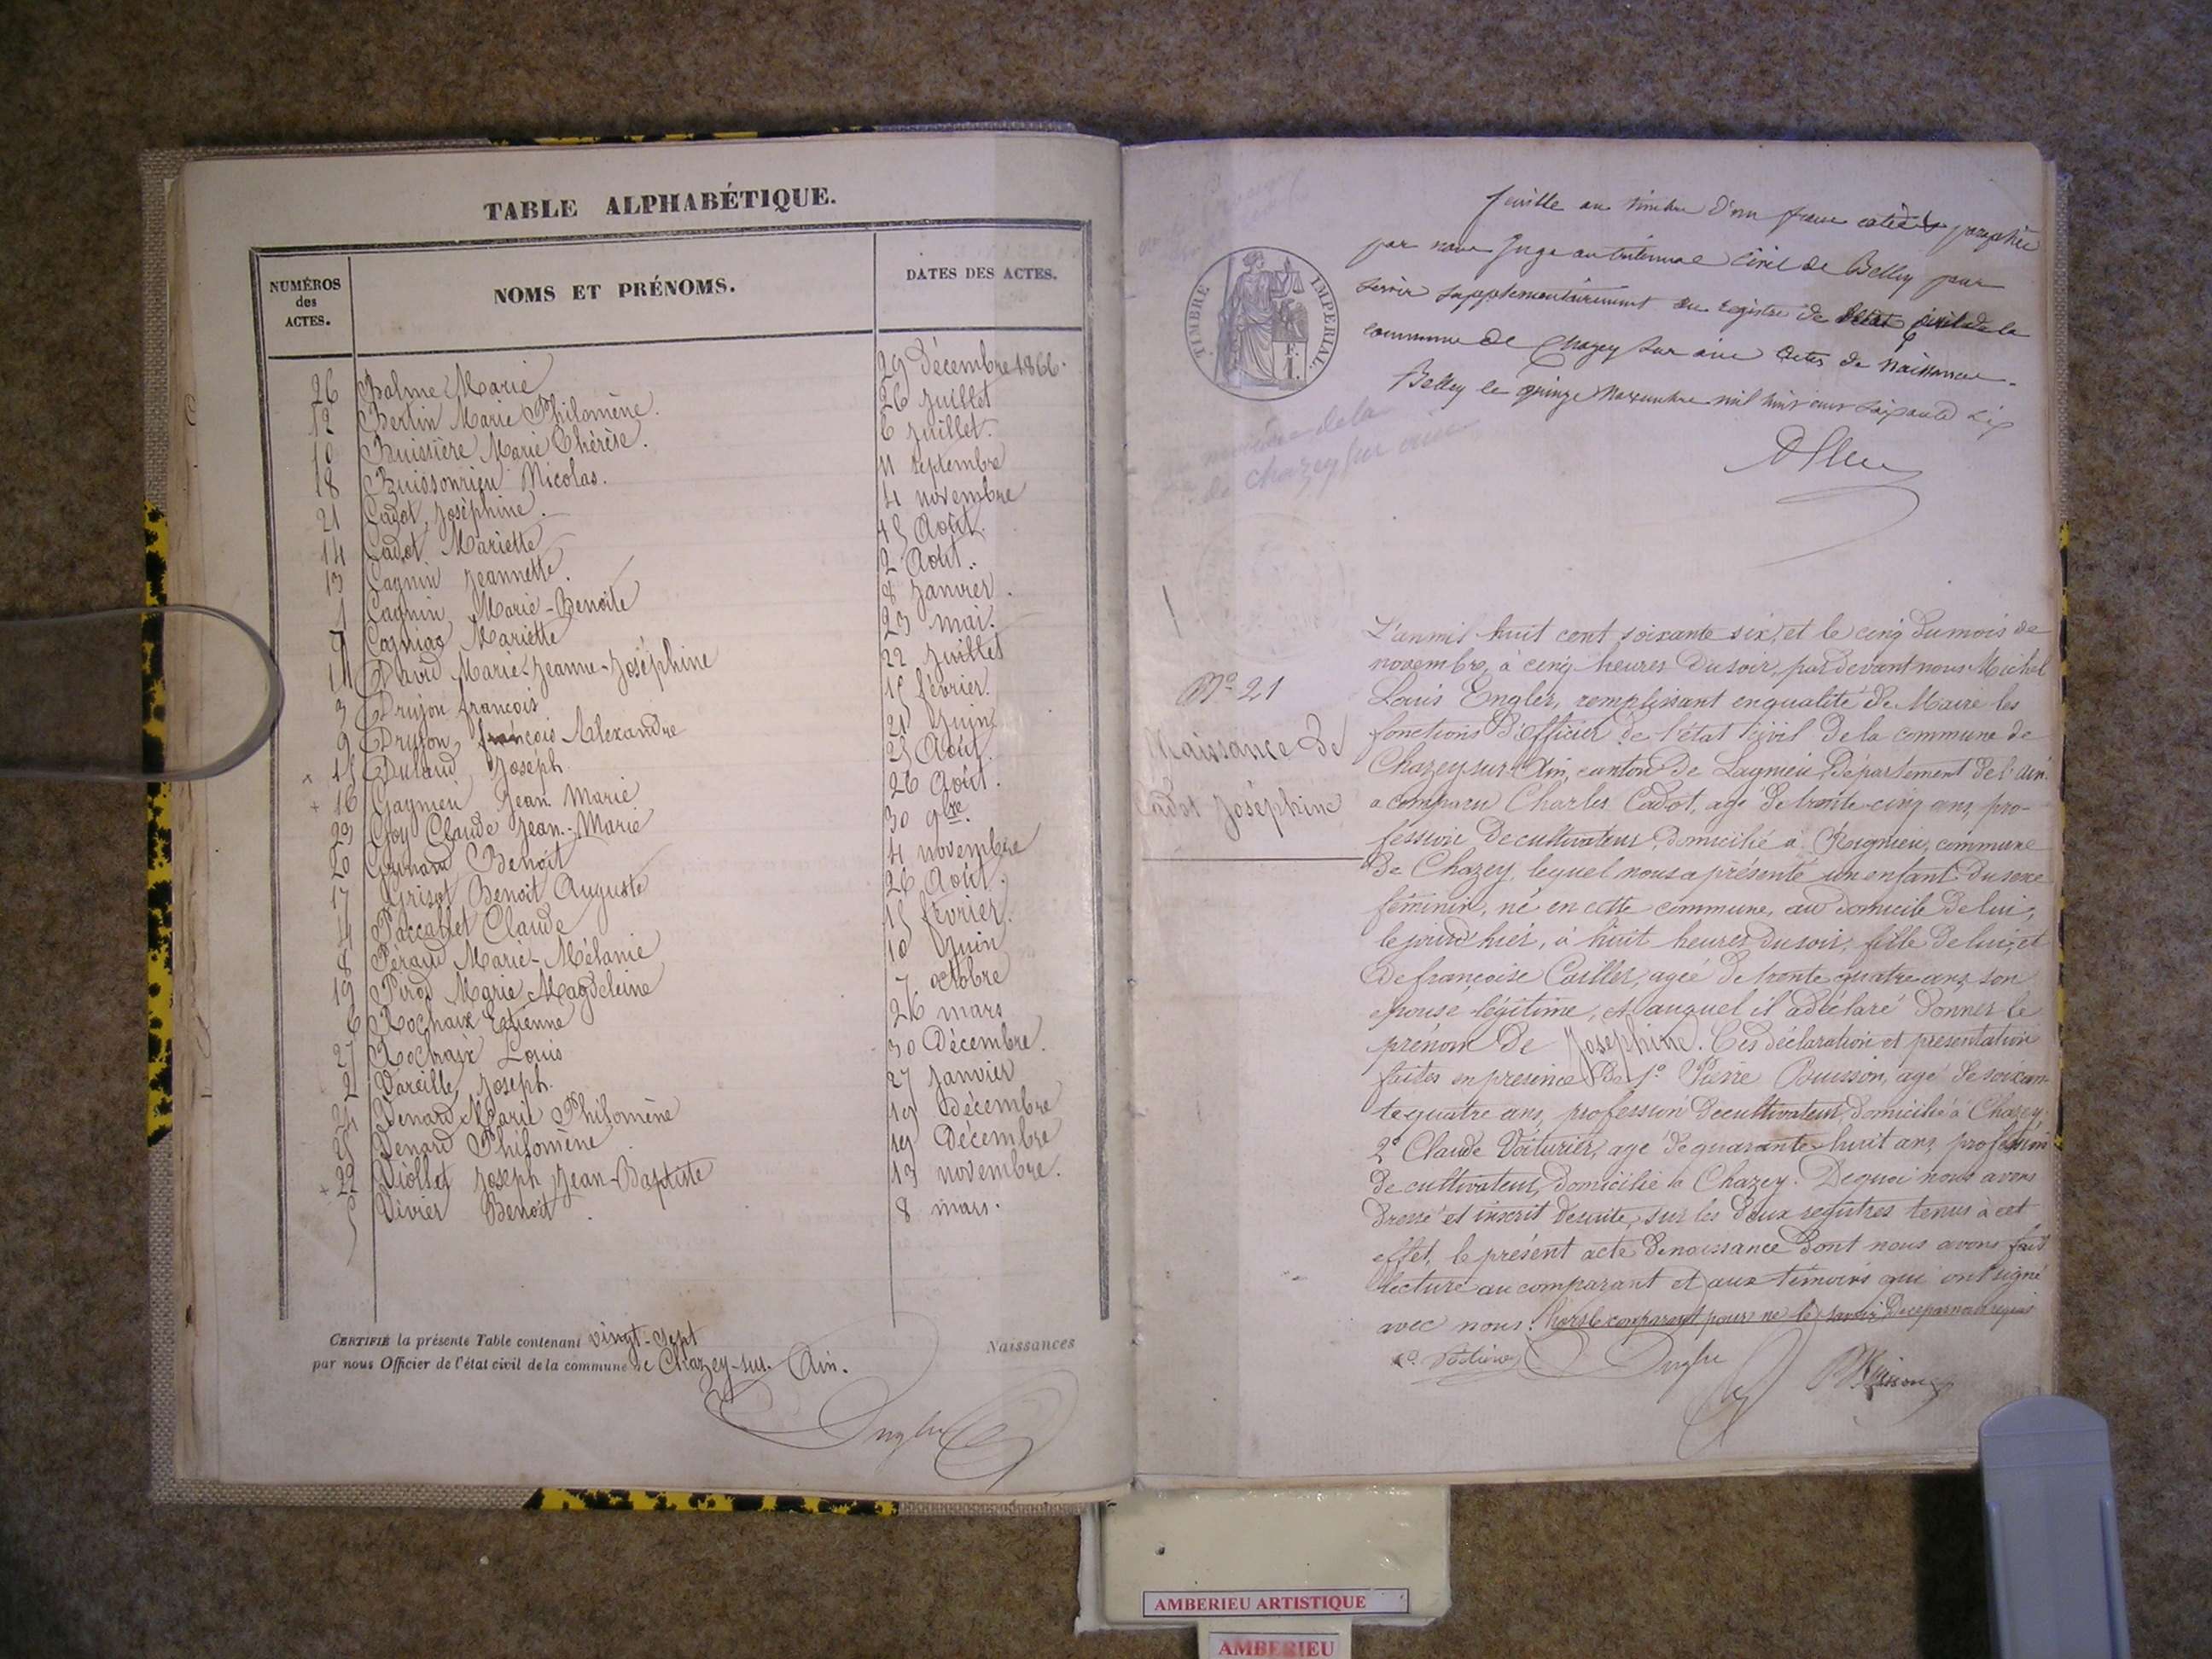 TABLE ALPHABÉTIQUE.
NUMÉROS des ACTES.
NOMS ET PRÉNOMS.
DATES DES ACTES.
26 Balme Marie 29 Décembre 1866.
12 Bertin Marie Philomène. 26 Juillet
10 Buissière Marie Thérèse. 6 Juillet.
18 Buissonrieu Nicolas. 11 septembre
21 Cadot, Joséphine. 4 novembre
14 Cadot Mariette 15 Août.
13 Cagnin Jeannette. 2 Août.
1 Cagnin, Marie-Benoite 8 Janvier.
7 Cagniac Mariette 23 mai.
11 David Marie-Jeanne-Joséphine 22 Juillet
3 Drujon françois 15 février.
9 Drujon, françois Alexandre 21 Juin
15 Joseph 25 Août
16 Gagneu Jean Marie 26 Août.
23 Goy Claude Jean-Marie 30 9bre.
20 Benoît 4 novembre
17 Grisot Benoit Auguste 26 Août.
4 Claude 15 février.
8 Péraud Marie-Mélanie 10 Juin
19 Pirod Marie Magdeleine 7 octobre
6 Rochaix Etienne 26 mars
27 Rochaix Louis 30 Décembre.
2 Vareille, Joseph. 27 Janvier
24 Venard Marie Philomène 19 Décembre
25 Venard Philomène 19 Décembre
22 Viollet Joseph Jean-Baptiste 13 novembre.
5 Vivier Benoit. 8 mars.
CERTIFIÉ la présente Table contenant vingt-sept Naissances
par nous Officier de l'état civil de la commune de Chazey-sur-Ain.
TIMBRE IMPERIAL.
feuille au timbre d'un franc cotée & paraphée
par nous Juge au tribunal Civil de Belley pour
servir supplémentairement au registre de l'état civil de la
commune de Chazey sur ain actes de naissance.
Belley le quinze Novembre mil huit cent soixante six
No 21
Naissance de
Cadot Joséphine
L'an mil huit cent soixante six, et le cinq du mois de
novembre, à cinq heures du soir, par devant nous Michel
Louis Engler, remplissant en qualité de Maire les
fonctions d'officier de l'état civil de la commune de
Chazey-sur-Ain, canton de Lagnieu, Département de l'ain.
a comparu Charles Cadot, agé de trente-cinq ans, pro-
fession de cultivateur, domicilié à Rignieu, commune
de Chazey, lequel nous a présenté un enfant du sexe
féminin, né en cette commune, au domicile de lui,
le jour d'hier, à huit heures du soir, fille de lui, et
de françoise Caillér, agée de trente quatre ans, son
épouse légitime, et auquel il a déclaré donner le
prénom de Joséphine. Ces déclaration et présentation
faites en présence de 1o Pierre Buisson, agé de soixan-
te quatre ans, profession de cultivateur, domicilié à Chazey
2o Claude Voiturier, agé de quarante-huit ans, profession
de cultivateur, domicilié à Chazey. De quoi nous avons
dressé et inscrit de suite, sur les deux registres tenus à cet
effet, le présent acte de naissance dont nous avons fait
lecture au comparant et aux témoins qui ont signé
avec nous. hors le comparant pour ne le savoir de ce par nous requis
AMBERIEU ARTISTIQUE
AMBERIEU